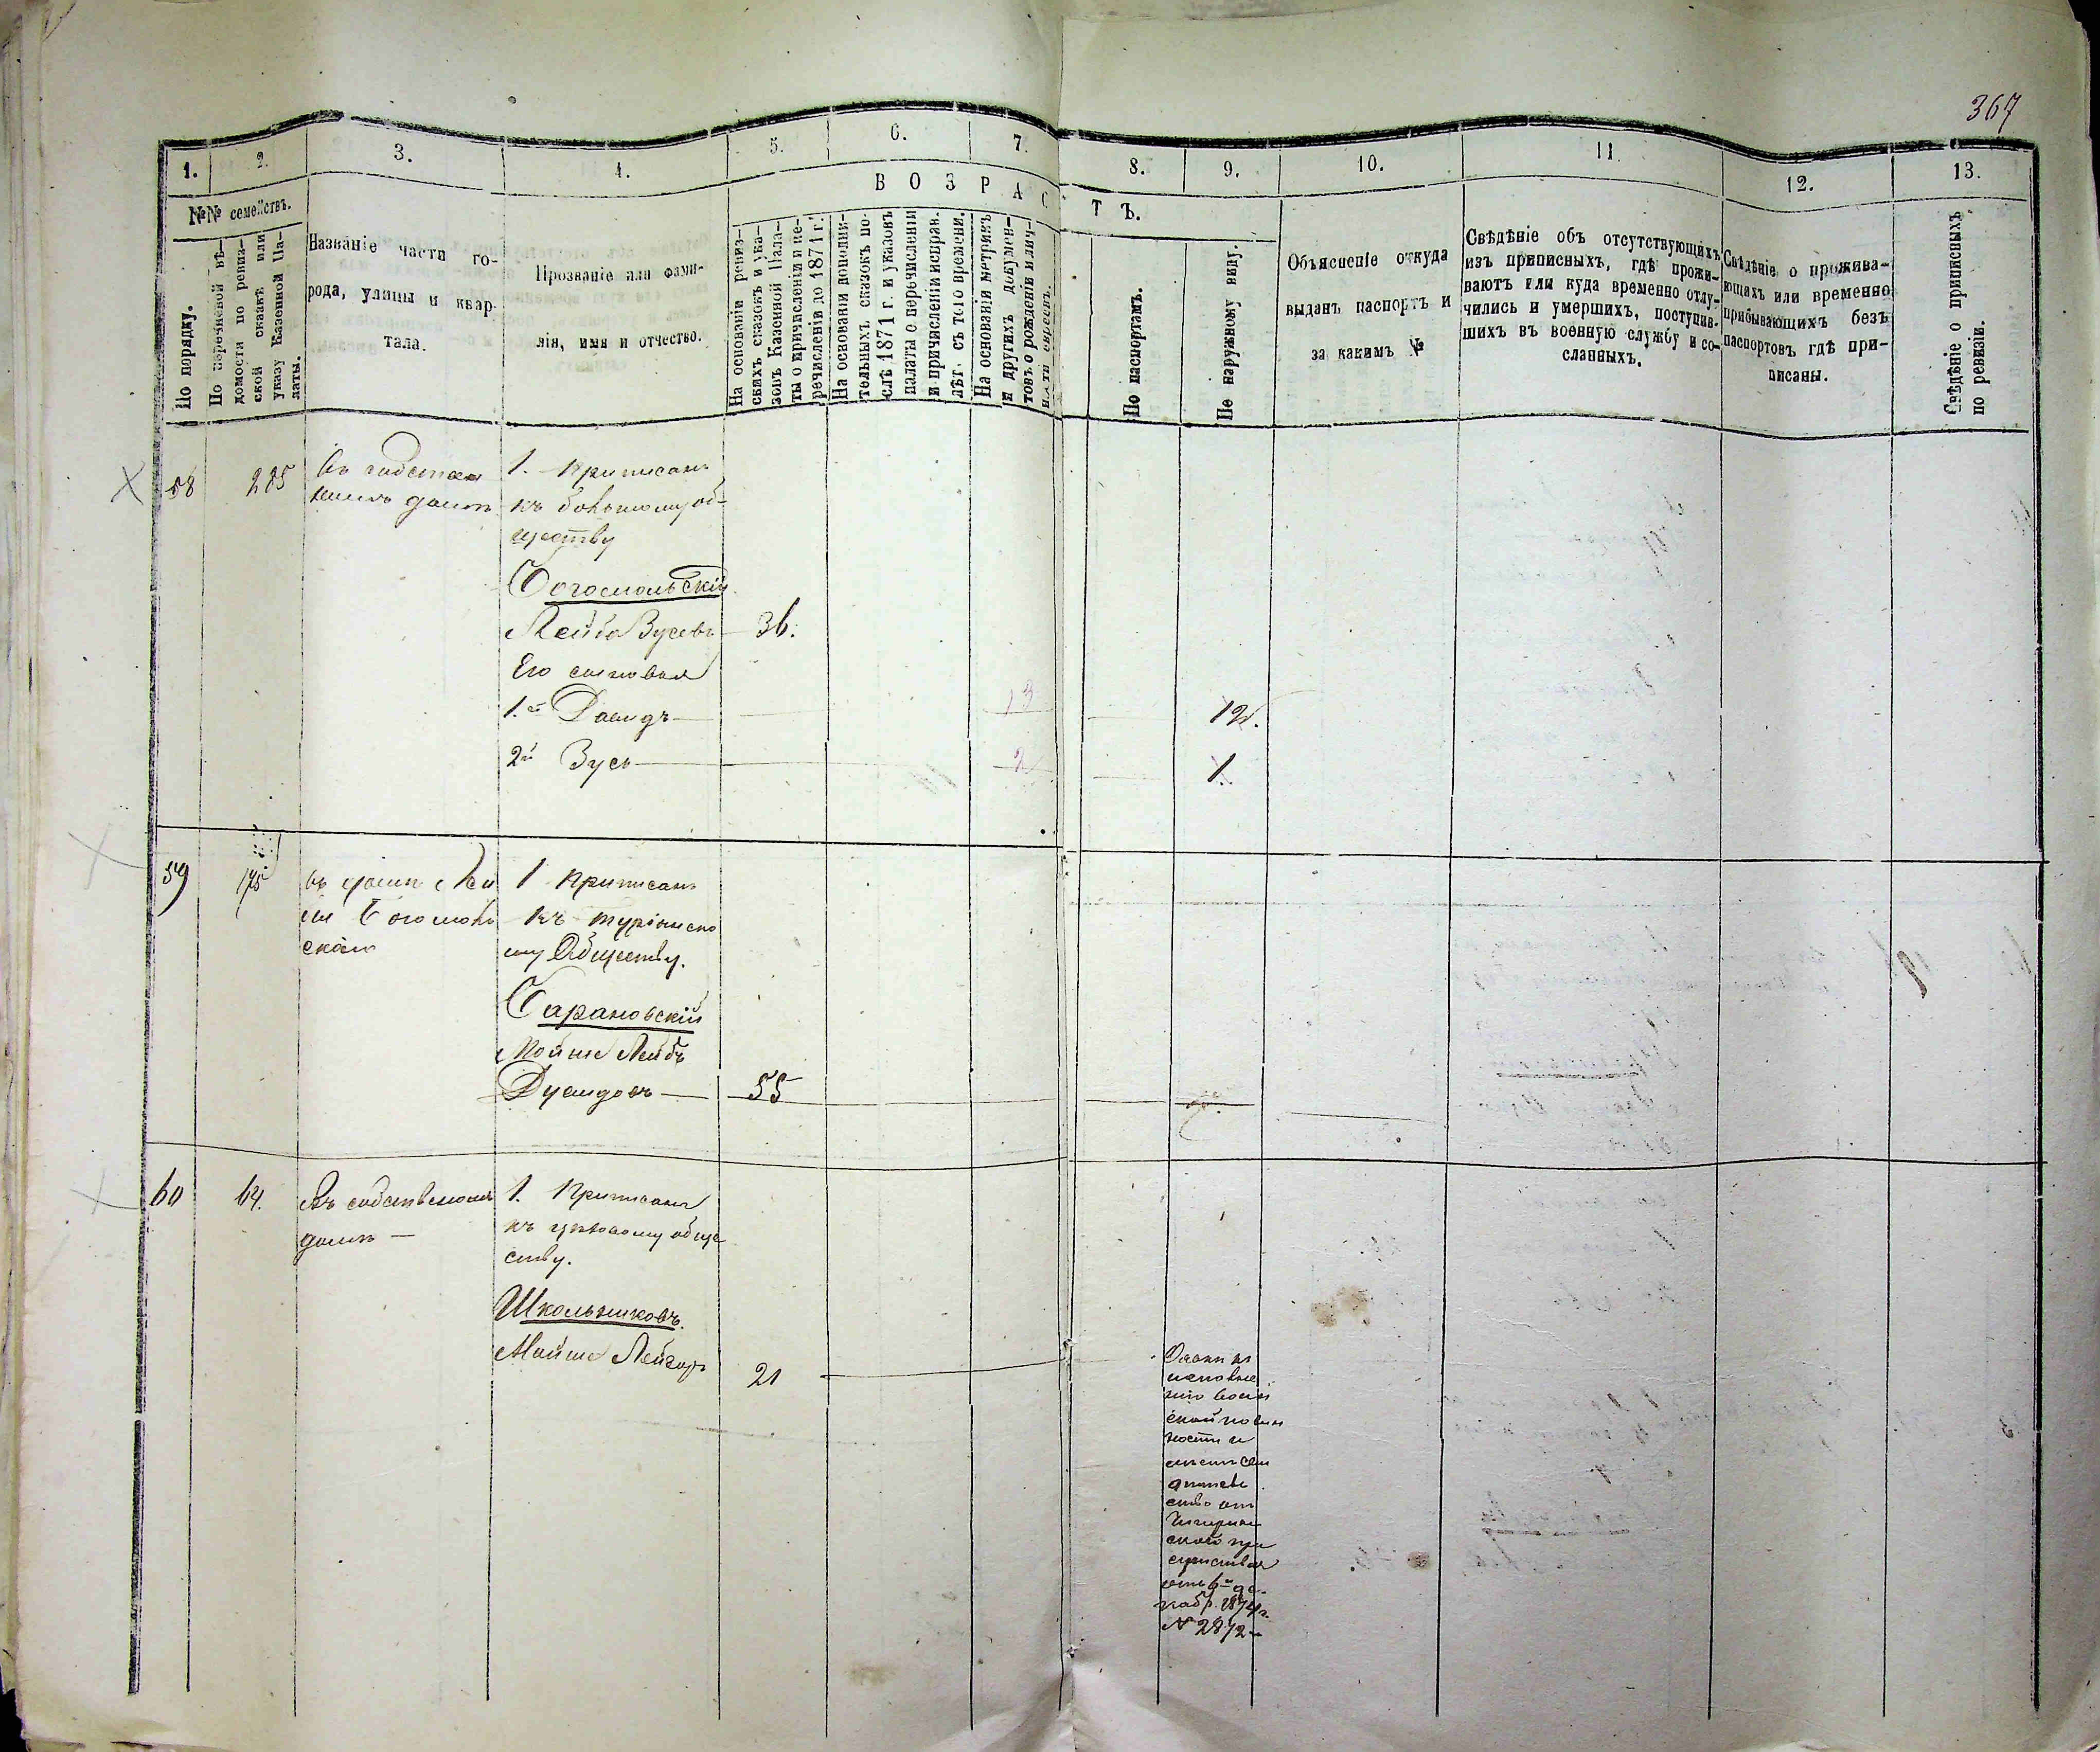 367
1.
2.
3.
4.
5.
6.
7.
8.
9.
10.
11.
12.
13.
№№ семействъ.
По порядку.
По перечневой вѣ-
домости по ревиз-
ской сказкѣ или
указу Казенной Па-
латы.
Названіе части го-
рода, улицы и квар-
тала.
Прозваніе или фами-
лія, имя и отчество.
ВОЗРАСТЪ.
На основаніи ревиз-
скихъ сказокъ и ука-
зовъ Казенной Пала-
ты о причисленіи и пе-
речисленіи до 1871 г.
На основаніи дополни-
тельныхъ сказокъ по-
слѣ 1871 г. и указовъ
палаты о перечисленіи
и причисленіи исправ.
лѣт. съ того времени.
На основаніи метрикъ
и другихъ докумен-
товъ о рожденіи и лич-
ности евреевъ.
По паспортамъ.
По наружному виду.
Объясненіе откуда
выданъ паспортъ и
за какимъ №
Свѣдѣніе объ отсутствующихъ
изъ приписныхъ, гдѣ прожи-
ваютъ или куда временно отлу-
чились и умершихъ, поступив-
шихъ въ военную службу и со-
сланныхъ.
Свѣдѣніе о прожива-
ющихъ или временно
прибывающихъ безъ
паспортовъ гдѣ при-
писаны.
Свѣдѣніе о приписныхъ
по ревизіи.
58
285
домѣ
1. Приписанъ
къ об-
ществу
Богомольскій
Лейба Зусевъ 36.
Его сыновья
1.й Давидъ 13 12.
2й Зусь 2 1
59
175
въ домѣ
Богомоль
скаго
1 Приписанъ
къ турiянско
му Обществу.
Барановскій
Мойше Лейбъ
Дувидовъ 55
60
64.
Въ собственномъ
домѣ
1. Приписанъ
къ обще
ству.
Школьниковъ.
Мойше 21
воин
ской повин
ности и
ство от
Чигирин
скаго при
сутствія
отъ 6го де-
кабр. 1874 г.
№ 2872